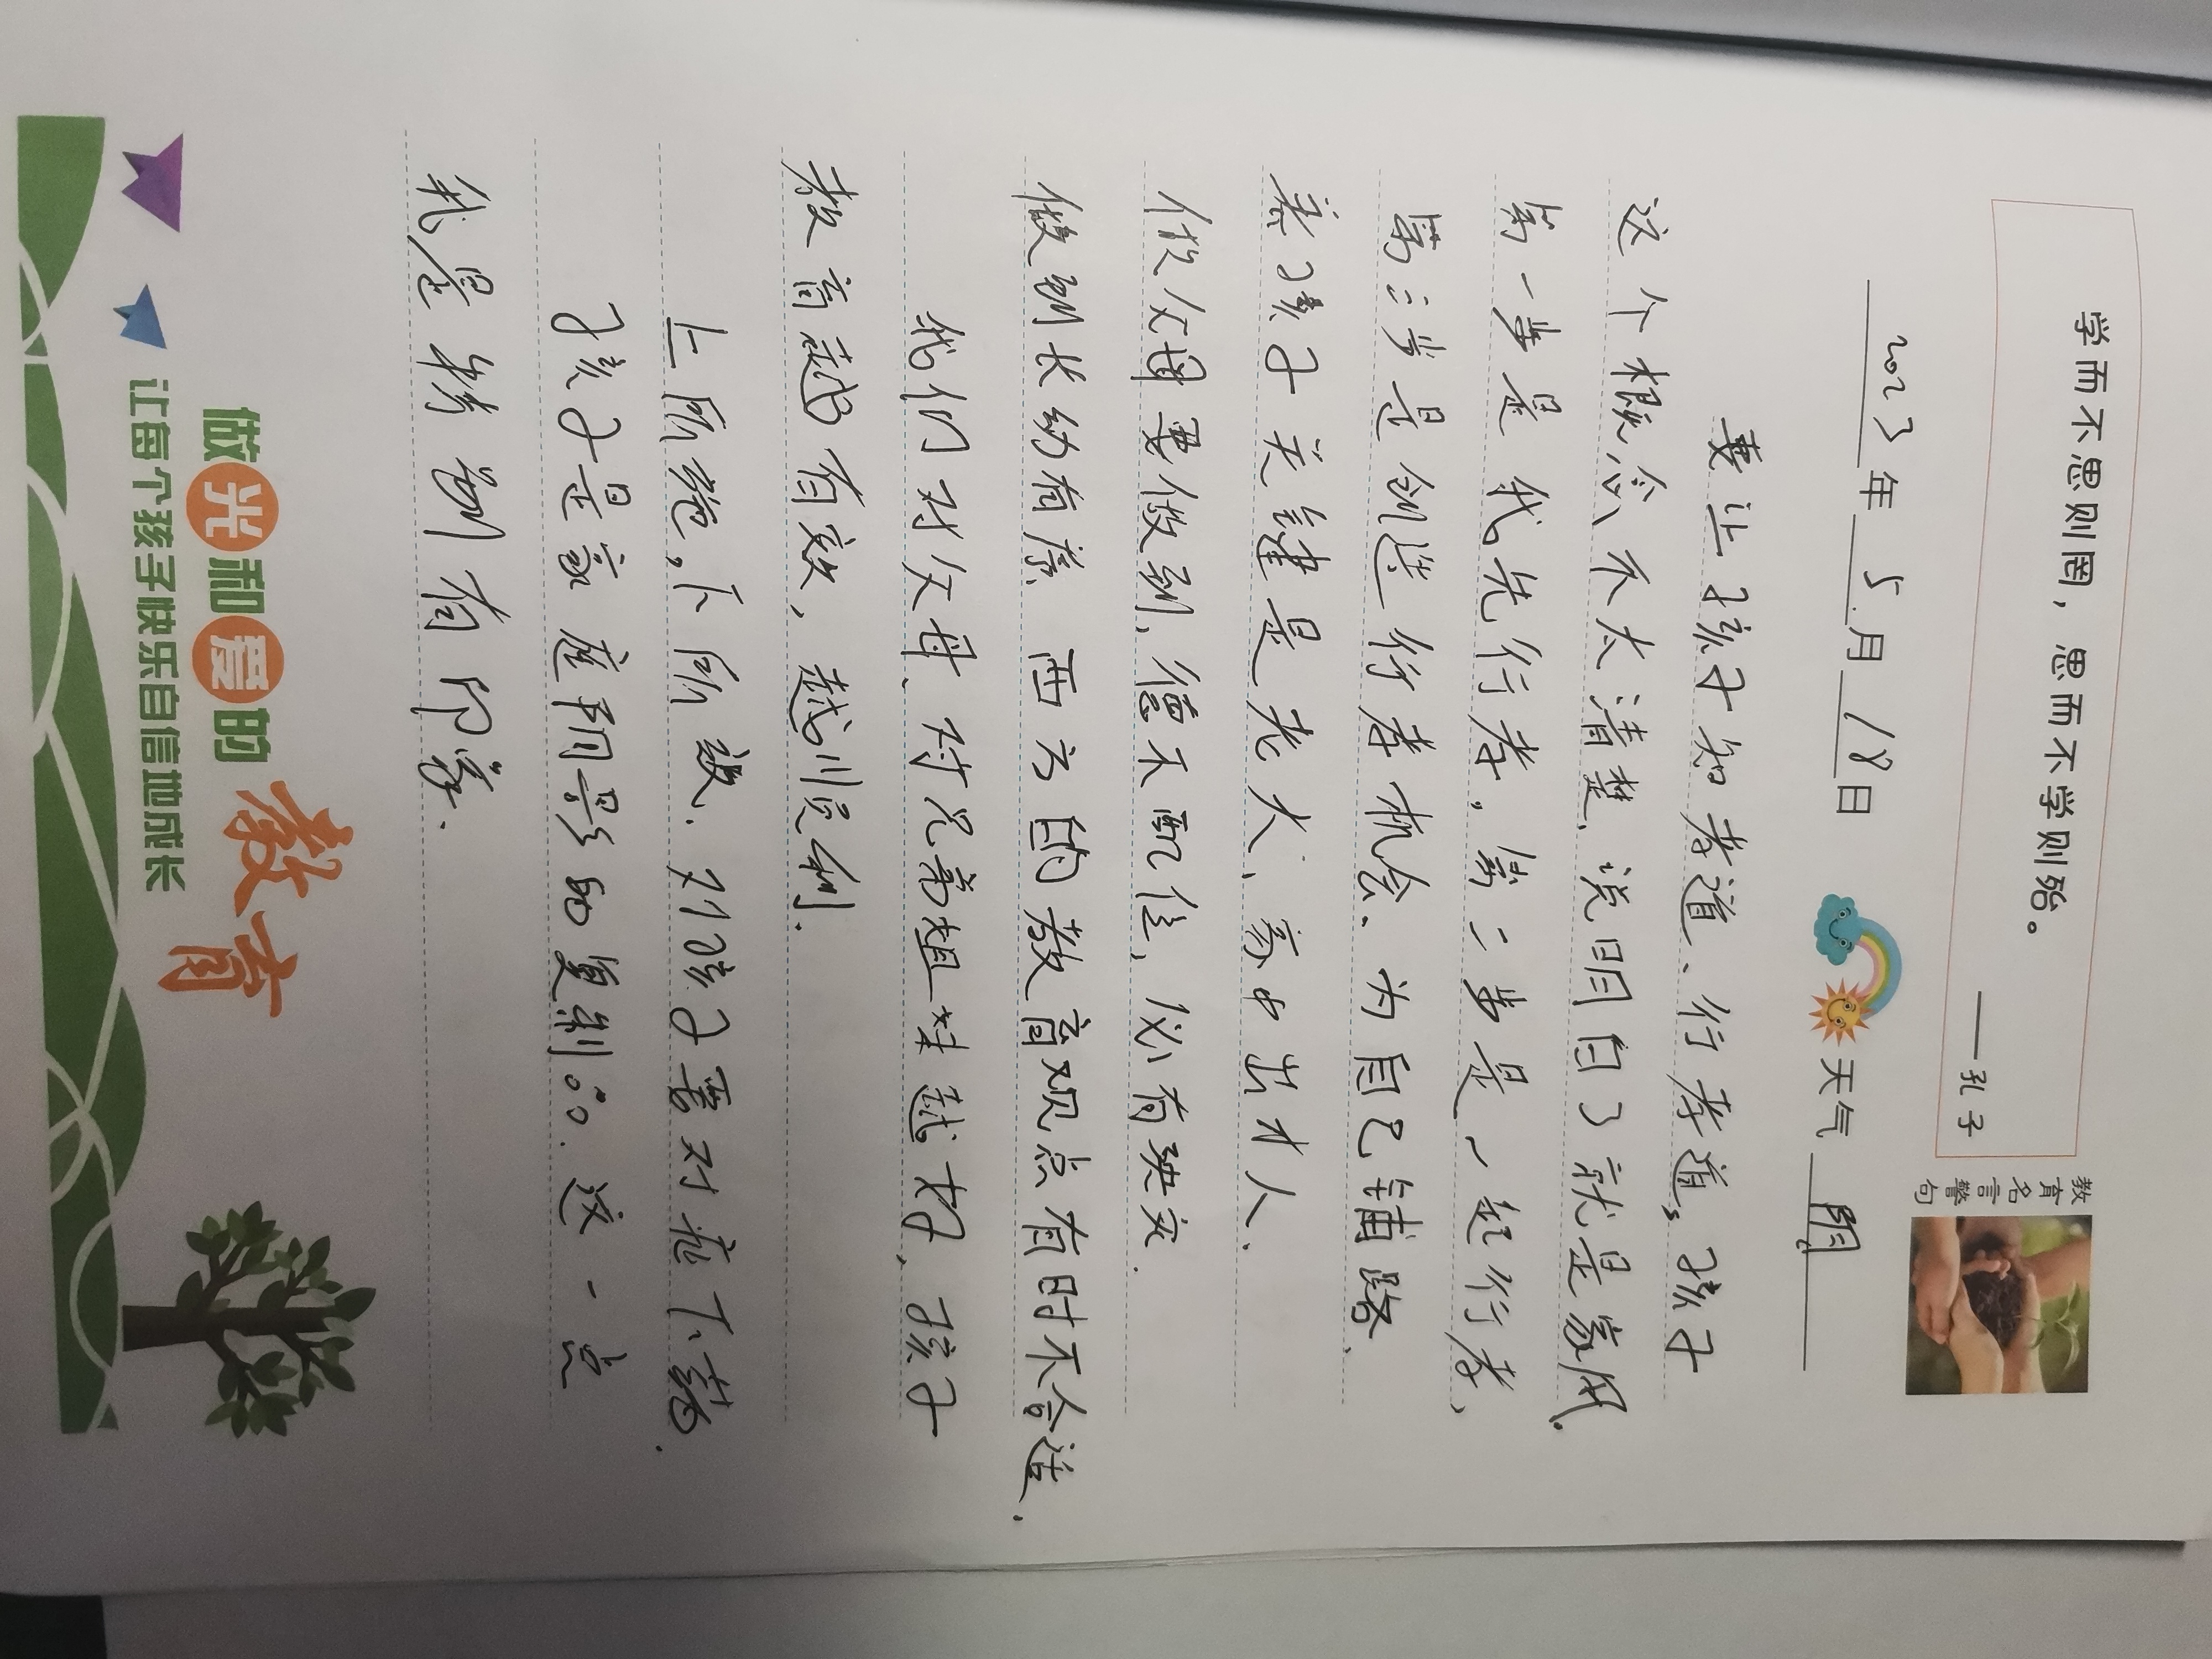 学而不思则罔，思而不学则殆。
——孔子
教育名言警句
2023年5月18日 天气 阴
要让孩子知孝道、行孝道。孩子
这个概念不太清楚、说明白了就是家风.
第一步是我先行孝，第二步是一起行孝，
第三步是创造行孝机会、为自己铺路、
养孩子关键是老大、家中出才人.
做父母要做到，德不配位，必有殃灾.
做到长幼有序、西方的教育观点有时不合适.
我们对父母、对兄弟姐妹越好，孩子
教育越有效，越顺利.
上所施，下所效、对孩子要对症下药.
孩子是家庭阴影的复制品.这一点
我是特别有印象.
做光和爱的教育
让每个孩子快乐自信地成长